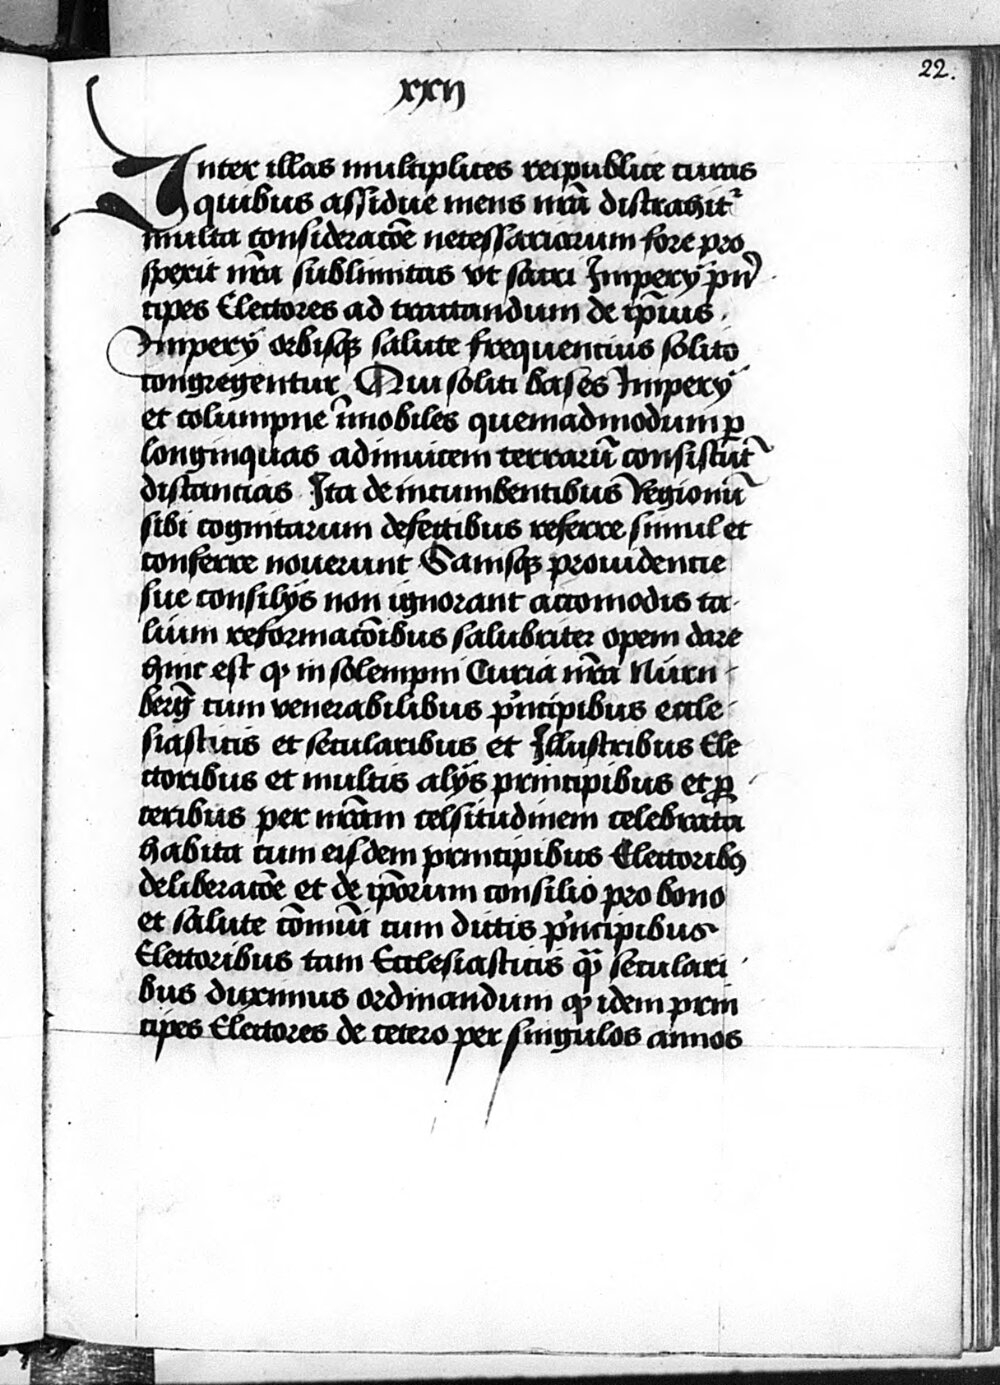 22.
xxij
Inter illas multiplices reipublice curas
quibus assidue mens nr̄a distrahitᷣ
multa consideracōe necessariorum fore pro
sperit nr̄a sublimitas vt sacri Imperÿ prin̄
cipes Electores ad tractandum de ip̄ius
Imperÿ orbisqꝫ salute frequencius solito
congregentur Qui soliti bases Imperÿ
et columpne īmobiles quemadmodum ꝑ
longinquas adinuicem terrarū consistūt
distancias Ita de incumbentibus Regionū
sibi cognitarum defectibus referre simul et
conferre nouerunt Sanisqꝫ prouidencie
sue consilÿs non ignorant accomodis ta
lium reformacōibus salubriter opem dare
hinc est ꝙ in solempni Curia nr̄a Nůrn
berḡ cum venerabilibus p̓ncipibus eccle
siasticis et secularibus et Illustribus Ele
ctoribus et multis alÿs principibus et ꝓ
ceribus per nr̄am celsitudinem celebrata
habita cum eisdem principibus Electoribꝫ
deliberacōe et de ip̄orum consilio pro bono
et salute cōmuni cum dictis p̓ncipibus
Electoribus tam Ecclesiasticis q̄ꝫ seculari
bus duximus ordinandum ꝙ idem prin
cipes Electores de cetero per singulos annos